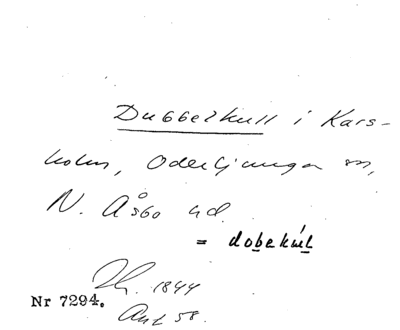 Dubbelkull i Kars-
holm, Oderljunga sn,
N. Åsbo hd.
= dobekúl
1844
Nr 7294.
Ant 58.